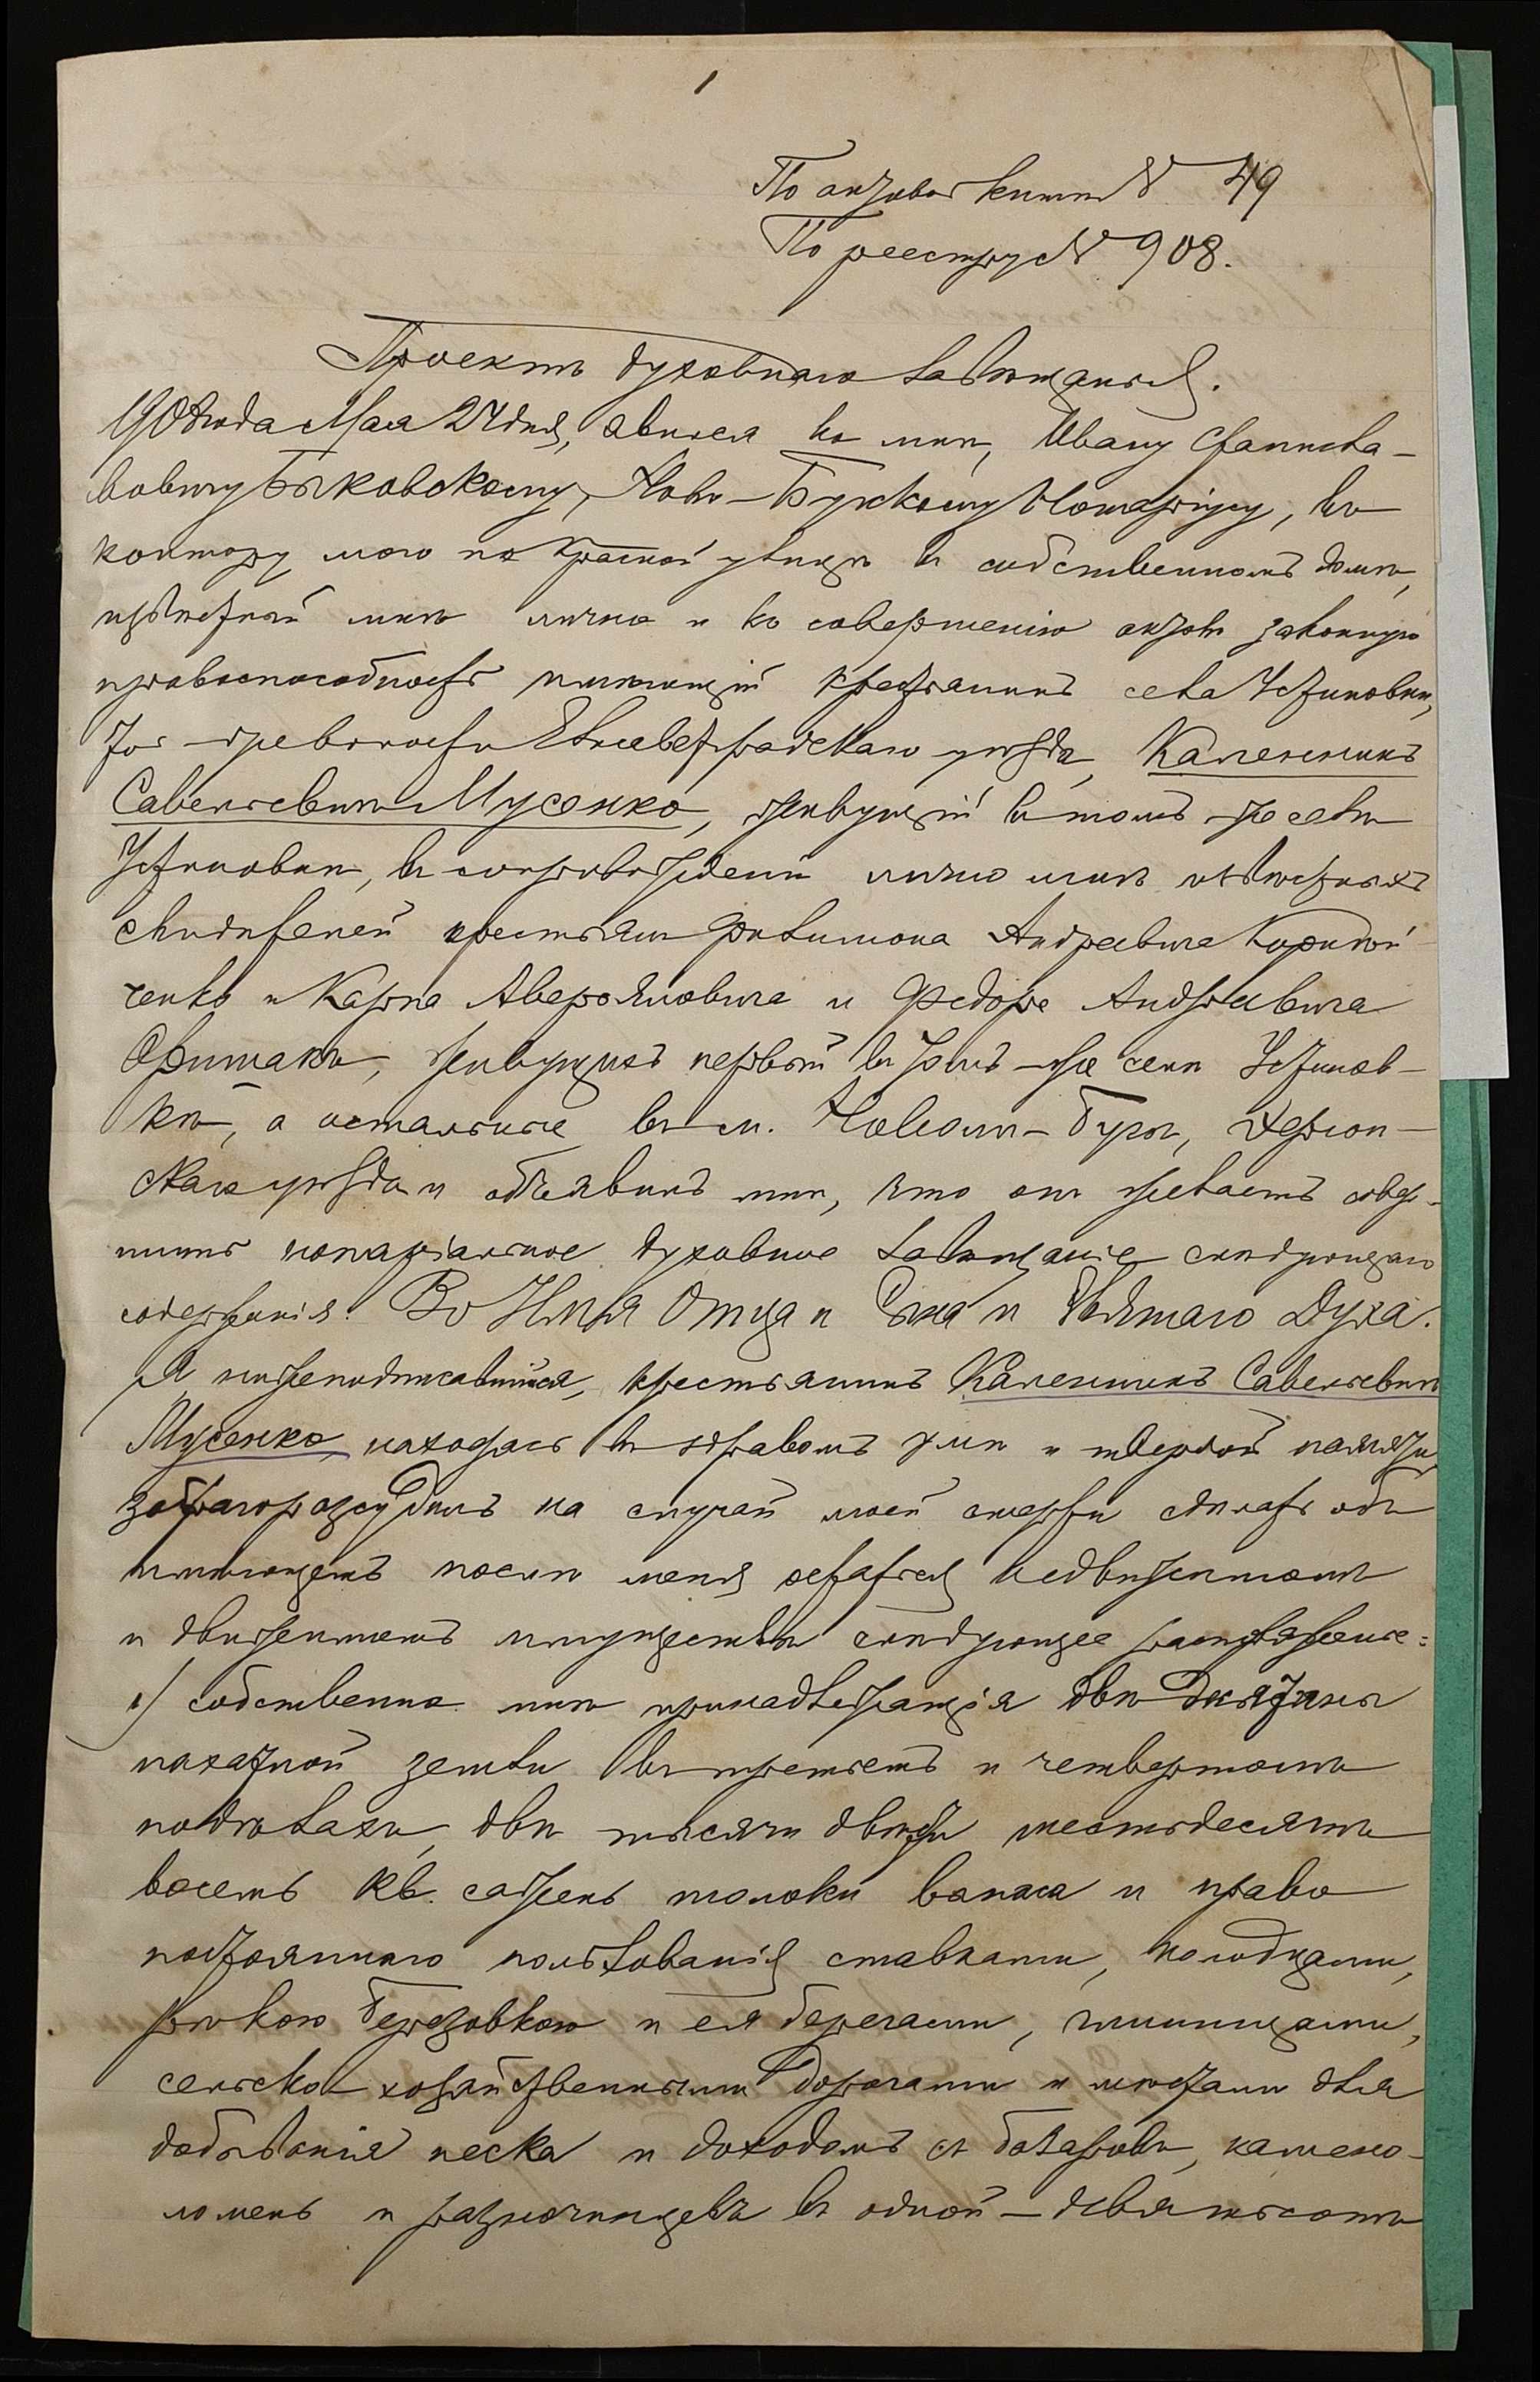 1
По актовой книгѣ № 49
По реестру № 908.
Проектъ духовнаго завѣщанія.
190 года Мая 27 дня, явился ко мнѣ, Ивану Станисла-
вовичу Быковскому, Ново-Бугскому Нотаріусу, въ
контору мою на Красной улицѣ въ собственномъ домѣ,
извѣстный мнѣ лично и къ совершенію актовъ законную
правоспособность имѣющій крестьянинъ села Устиновки,
той-же волости Елисаветградскаго уѣзда, Каленикъ
Савельевичъ Мусенко, живущій въ томъ-же селѣ
Устиновкѣ, въ сопровожденіи лично мнѣ извѣстныхъ
свидѣтелей крестьянъ Филимона Андреевича
ченко и Карпа Аверьяновича и Федора Андреевича
живущихъ первый въ томъ-же селѣ Устинов-
кѣ, а остальные въ м. Новомъ-Бугѣ, Херсон-
скаго уѣзда и объявилъ мнѣ, что онъ желаетъ совер-
шить нотаріальное духовное завѣщаніе слѣдующаго
содержанія: Во Имя Отца и Сына и Святаго Духа.
Я нижеподписавшійся, крестьянинъ Каленикъ Савельевичъ
Мусенко, находясь въ здравомъ умѣ и твердой памяти,
заблагоразсудилъ на случай моей смерти сдѣлать объ
имѣющемъ послѣ меня остаться недвижимомъ
и движимомъ имуществѣ слѣдующее распоряженіе:
1) собственно мнѣ принадлежащія двѣ десятины
пахатной земли въ третьемъ и четвертомъ
подѣлахъ, двѣ тысячи двѣсти шестьдесятъ
восемь кв. сажень толоки выпаса и право
постояннаго пользованія ставками, колодцами,
рѣкою Березовкою и ея берегами, глинищами,
сельско-хозяйственными дорогами и мѣстами для
добыванія песка и доходомъ съ базаровъ, камено-
ломень и разночинцевъ въ одной-девятьсотъ